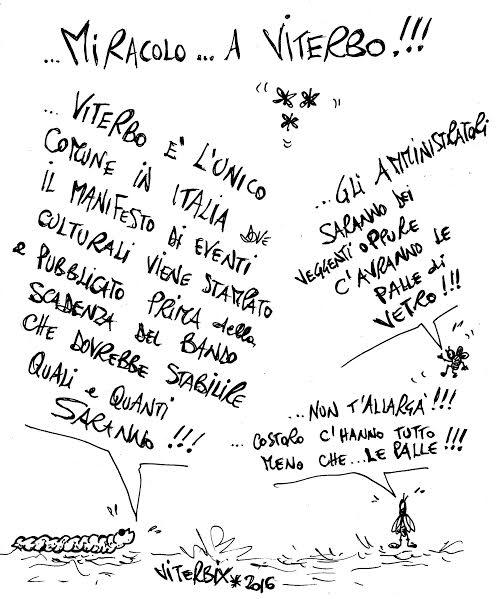 ...MIRACOLO... A VITERBO!!!
...VITERBO E' L'UNICO
COMUNE IN ITALIA DOVE
IL MANIFESTO DI EVENTI
CULTURALI VIENE STAMPATO
e PUBBLICATO PRIMA della
SCADENZA DEL BANDO
CHE DOVREBBE STABILIRE
QUALI e QUANTI
SARANNO!!!
...GLI AMMINISTRATORI
SARANNO DEI
VEGGENTI OPPURE
C'AVRANNO LE
PALLE di
VETRO!!!
...NON T'ALLARGÀ!!!
...COSTORO C'HANNO TUTTO
MENO CHE...LE PALLE!!!
VITERBIX*2016